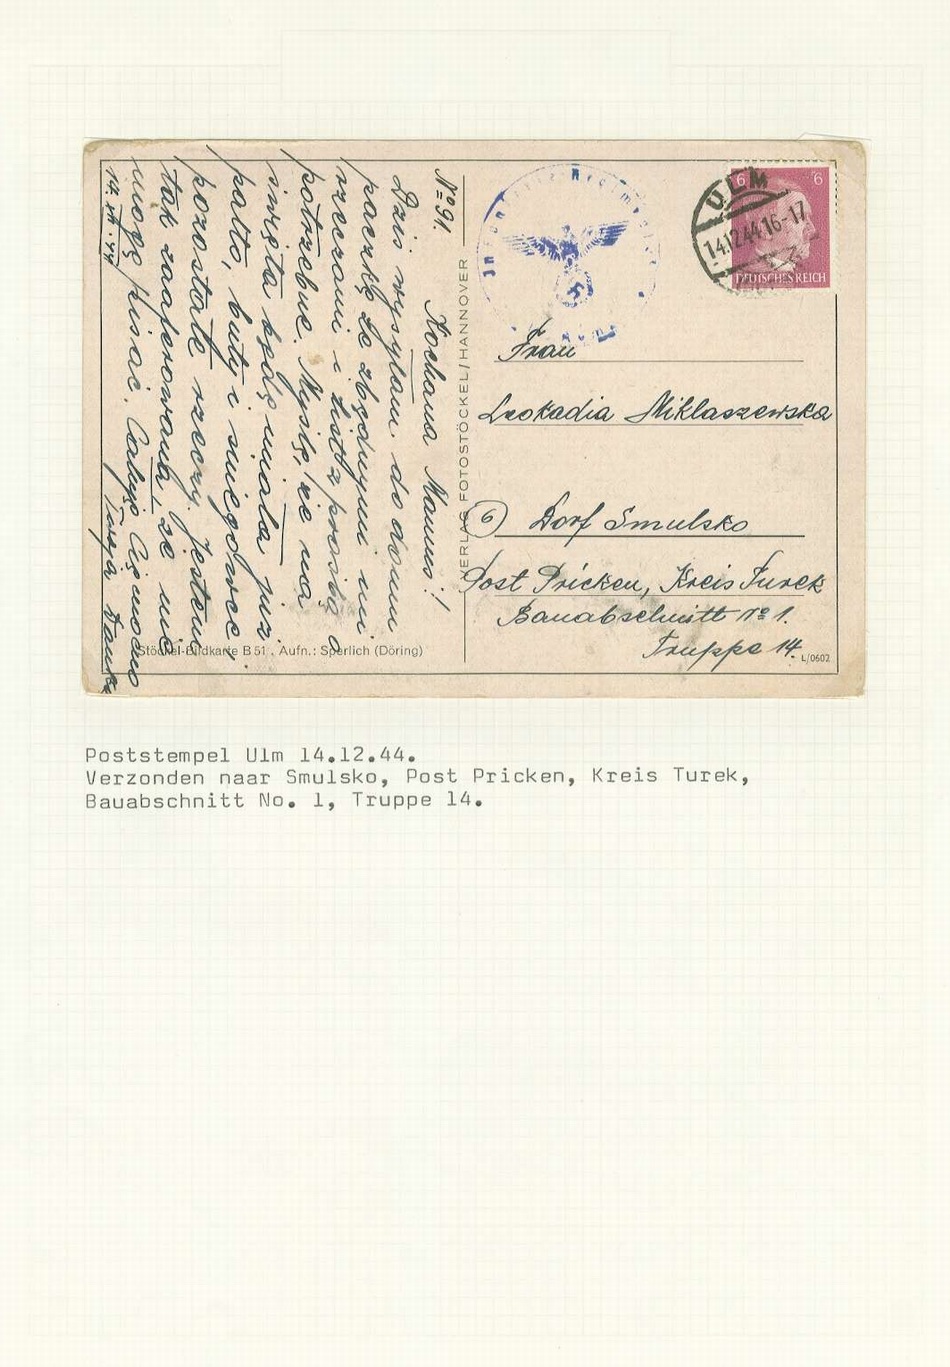 No 91.
Kochana Mamus!
Dziś wysyłam do domu
paczkę ze zbędnymi mi
rzeczami i list z prośbą o
potrzebne. Myślę, że na
święta będę miała już
palto, buty i śniegowce,
pozostałe rzeczy. Jestem
tak zaaferowana, że nie
mogę pisać. Całuję Cię mocno
14.XII.44 Twoja Danka
VERLAG FOTOSTÖCKEL/HANNOVER
Stöckel-Bildkarte B 51. Aufn.: Sperlich (Döring)
ULM
14.12.44.16-17
6 6
DEUTSCHES REICH
Frau
Leokadia Miklaszewska
(6) Dorf Smulsko
Post Pricken, Kreis Turek
Bauabschnitt No 1.
Truppe 14.
L/0602
Poststempel Ulm 14.12.44.
Verzonden naar Smulsko, Post Pricken, Kreis Turek,
Bauabschnitt No. 1, Truppe 14.